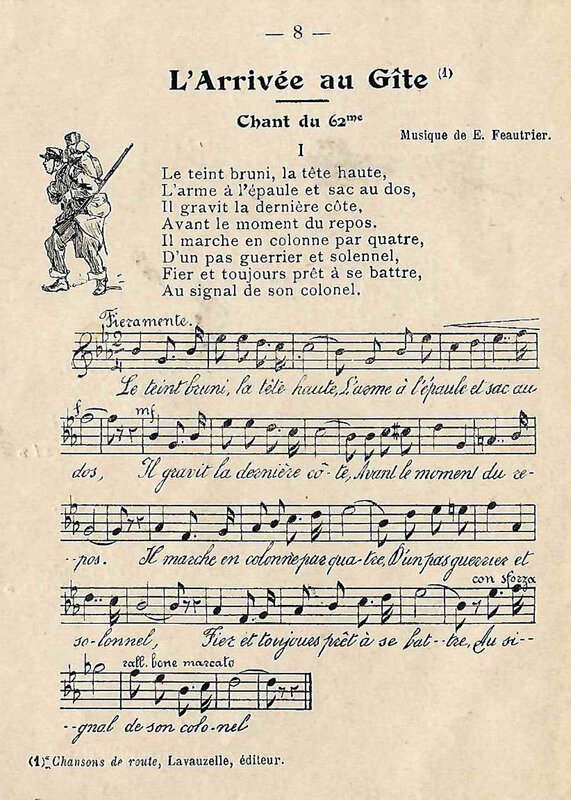 — 8 —
L'Arrivée au Gîte (1)
Chant du 62me
Musique de E. Feautrier.
I
Le teint bruni, la tête haute,
L'arme à l'épaule et sac au dos,
Il gravit la dernière côte,
Avant le moment du repos.
Il marche en colonne par quatre,
D'un pas guerrier et solennel,
Fier et toujours prêt à se battre,
Au signal de son colonel.
Fieramente.
2 4
Le teint bruni, la tête haute, L'arme à l'épaule et sac au
f mf
dos, Il gravit la dernière cô-te, Avant le moment du re-
--pos. Il marche en colonne par qua-tre, D'un pas guerrier et
con sforza
so-lonnel, Fier et toujours prêt à se bat--tre, Au si--
rall. bene marcato
--gnal de son colo-nel
(1) Chansons de route, Lavauzelle, éditeur.